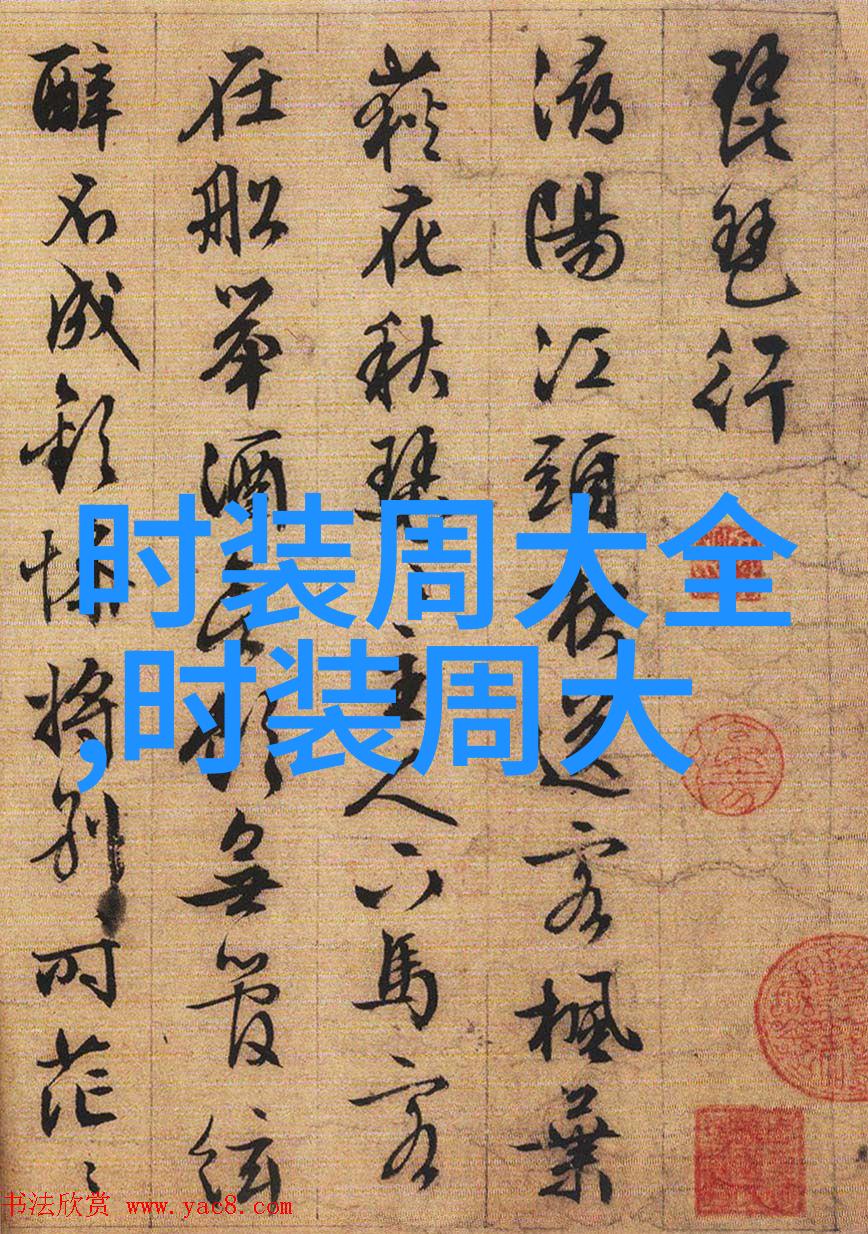 琵琶行
潯陽江頭夜送客楓葉
荻花秋瑟〻主人下馬客
在船舉酒欲飲無管絃
醉不成歡慘將別〻時茫〻
时装周大全
,时装周大
书法欣赏 www.yac8.com